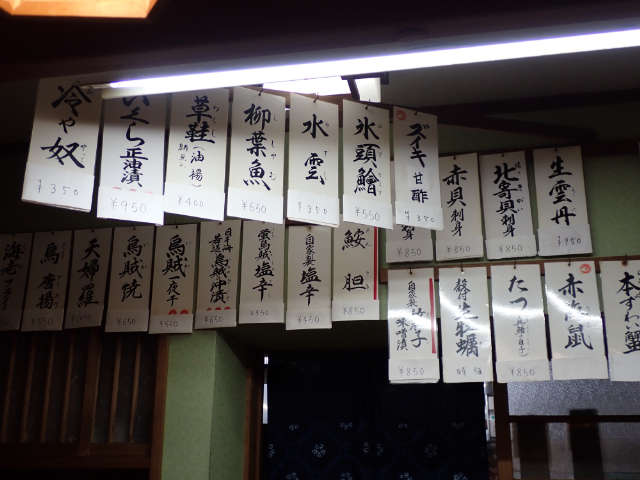 冷や奴
やっこ
¥350
いくら正油漬
¥950
草鞋(油揚)
¥400
柳葉魚
ししゃも
¥650
水雲
¥350
氷頭鱠
¥550
ズイキ甘酢
¥350
¥850
赤貝刺身
¥850
北寄貝刺身
¥850
生雲丹
¥950
海老フライ
鳥唐揚
¥550
天婦羅
烏賊焼
¥650
烏賊一夜干
¥550
自家製烏賊沖漬
¥650
塩辛
¥450
自家製塩辛
¥450
鮟肝
¥850
自家製
味噌漬
¥850
殻付生牡蠣
時価
たつ
¥850
赤海鼠
¥850
本ずわい蟹